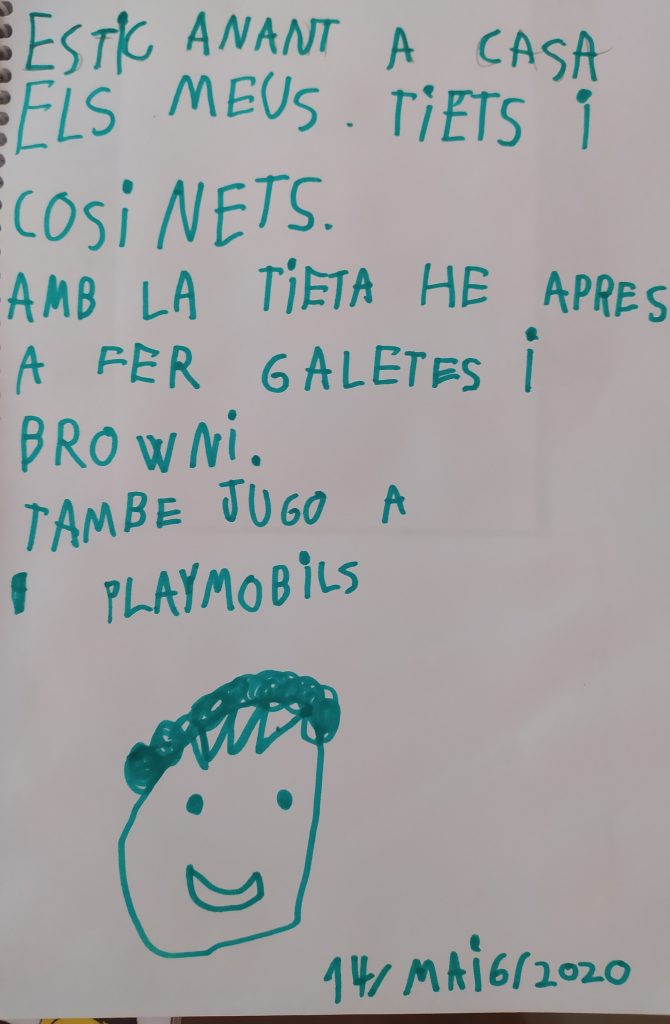 ESTIC ANANT A CASA
ELS MEUS. TiETS i
COSiNETS.
AMB LA TiETA HE APRES
A FER GALETES i
BROWNi.
TAMBE JUGO A
PLAYMOBiLS
14/ MAiG/2020